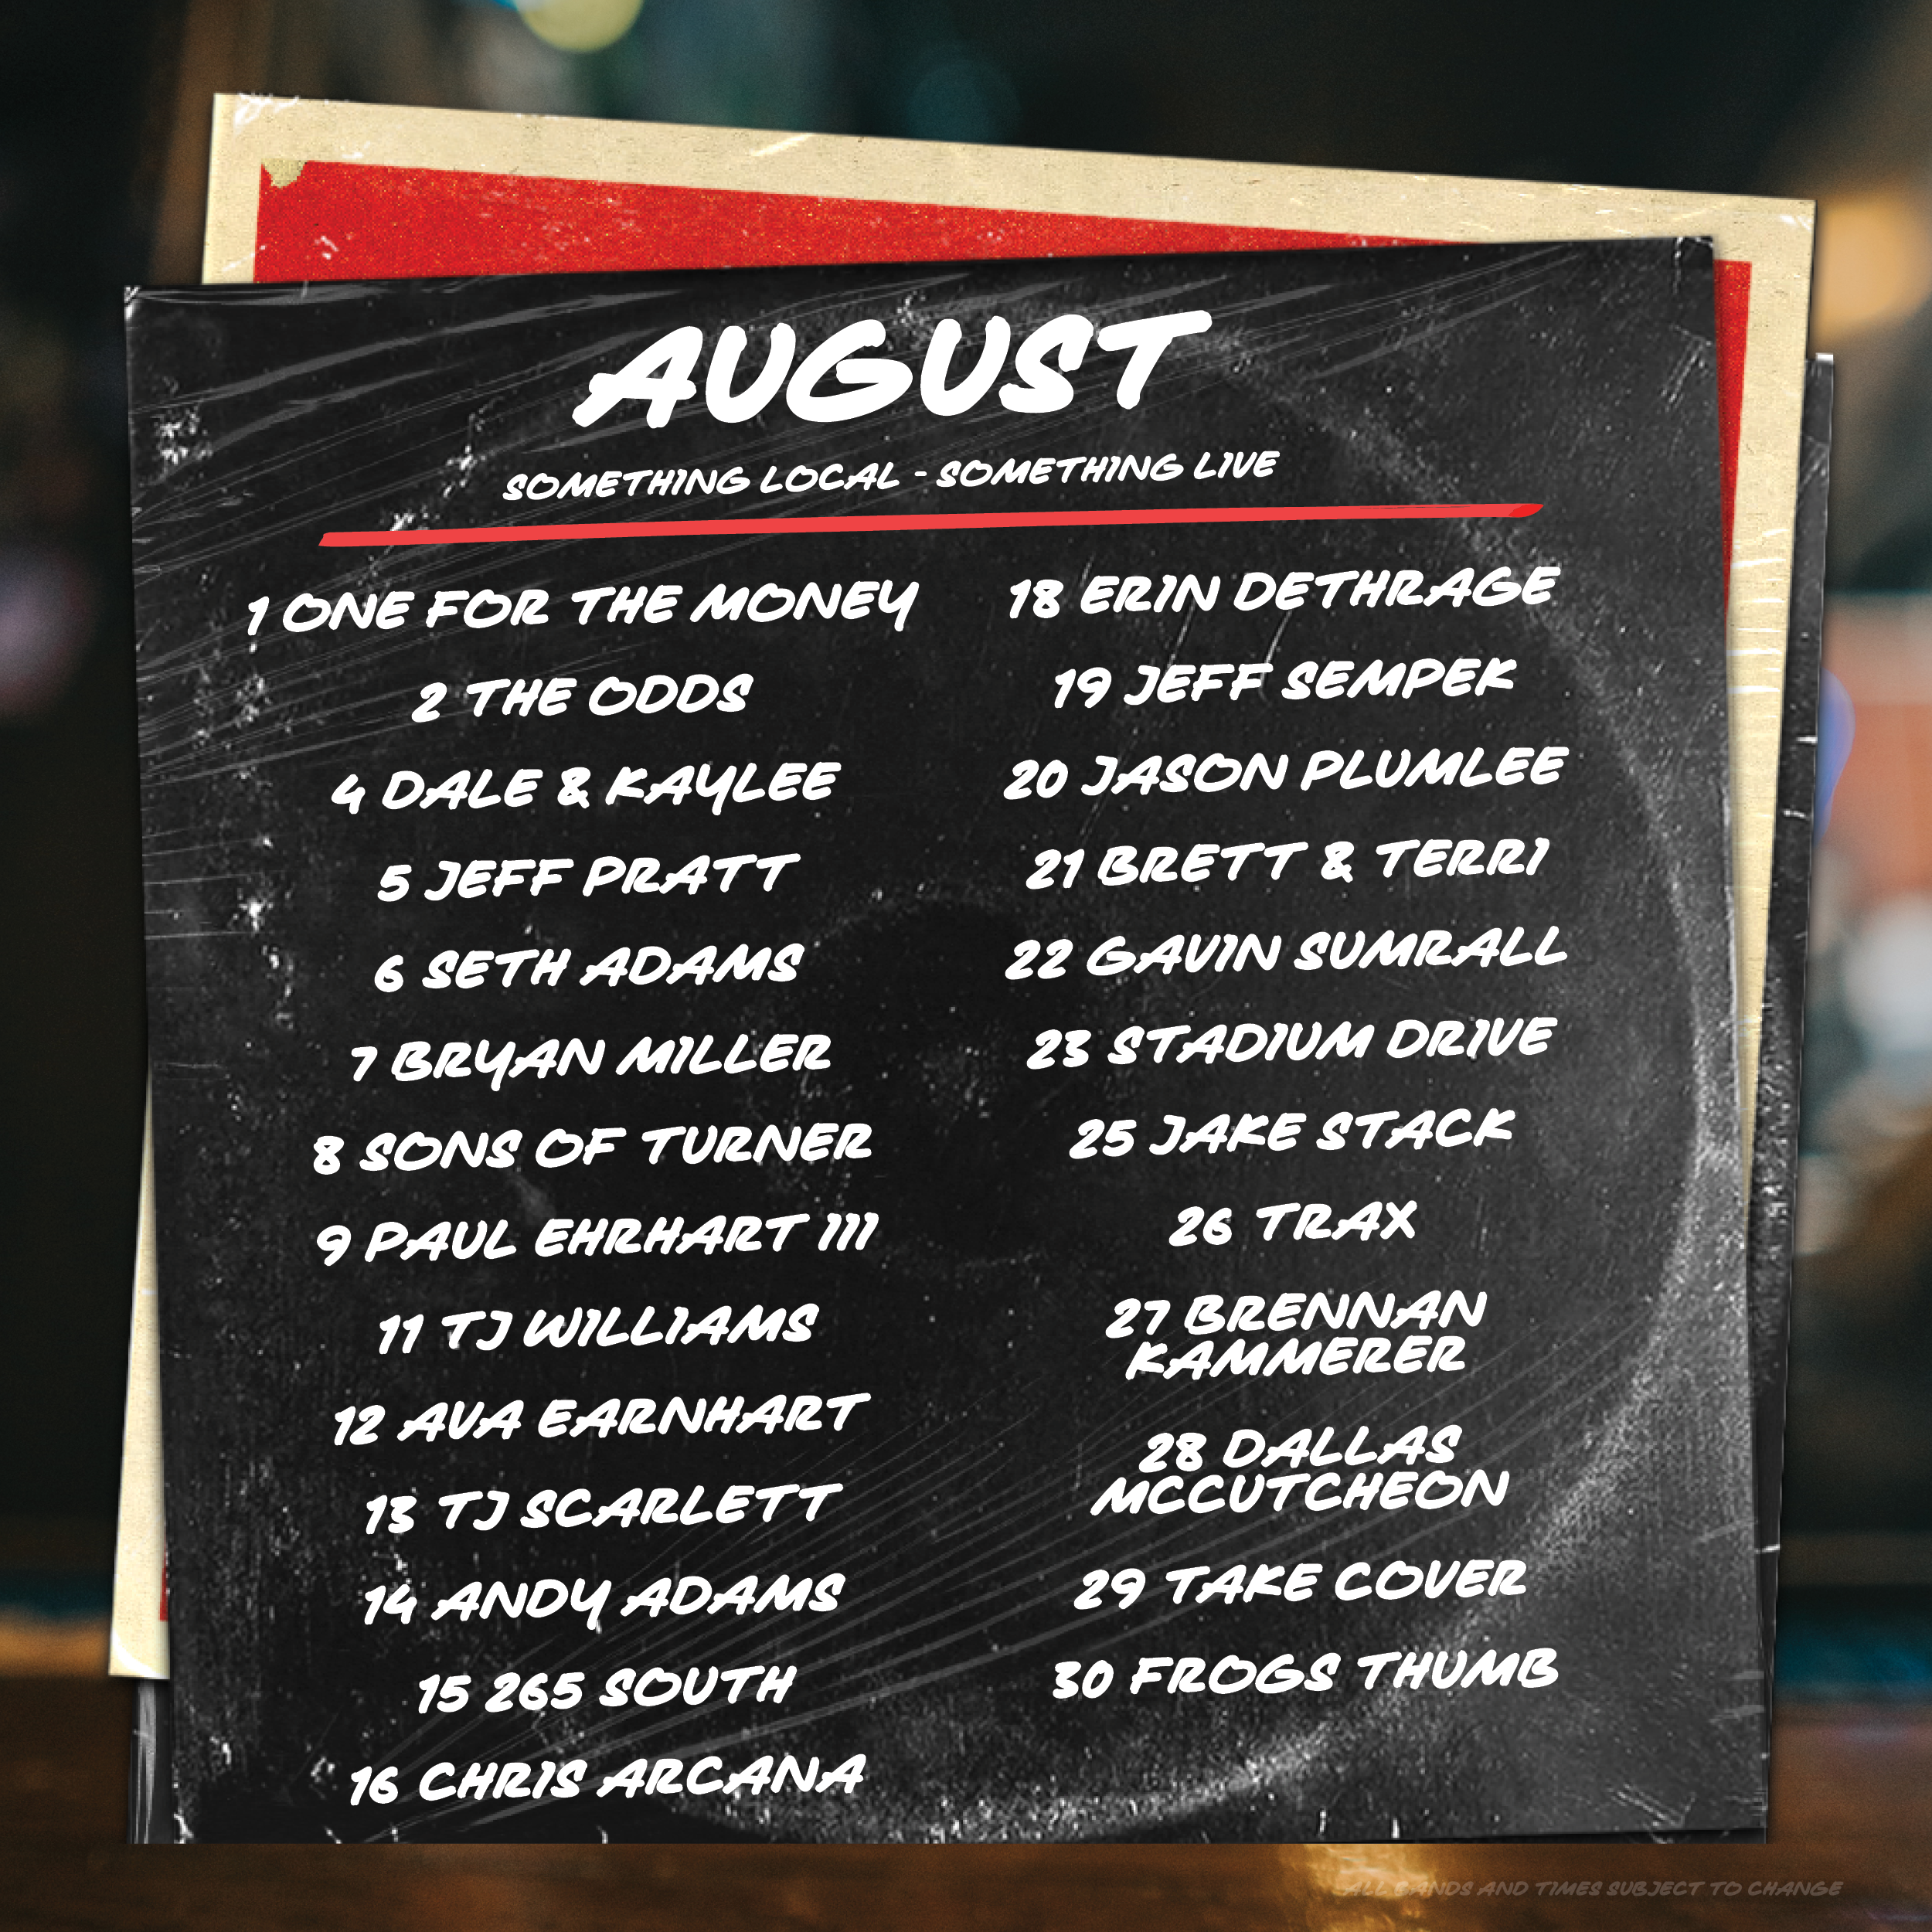 AUGUST
SOMETHING LOCAL - SOMETHING LIVE
1 ONE FOR THE MONEY
2 THE ODDS
4 DALE & KAYLEE
5 JEFF PRATT
6 SETH ADAMS
7 BRYAN MILLER
8 SONS OF TURNER
9 PAUL EHRHART III
11 TJ WILLIAMS
12 AVA EARNHART
13 TJ SCARLETT
14 ANDY ADAMS
15 265 SOUTH
16 CHRIS ARCANA
18 ERIN DETHRAGE
19 JEFF SEMPEK
20 JASON PLUMLEE
21 BRETT & TERRI
22 GAVIN SUMRALL
23 STADIUM DRIVE
25 JAKE STACK
26 TRAX
27 BRENNAN
KAMMERER
28 DALLAS
MCCUTCHEON
29 TAKE COVER
30 FROGS THUMB
ALL BANDS AND TIMES SUBJECT TO CHANGE